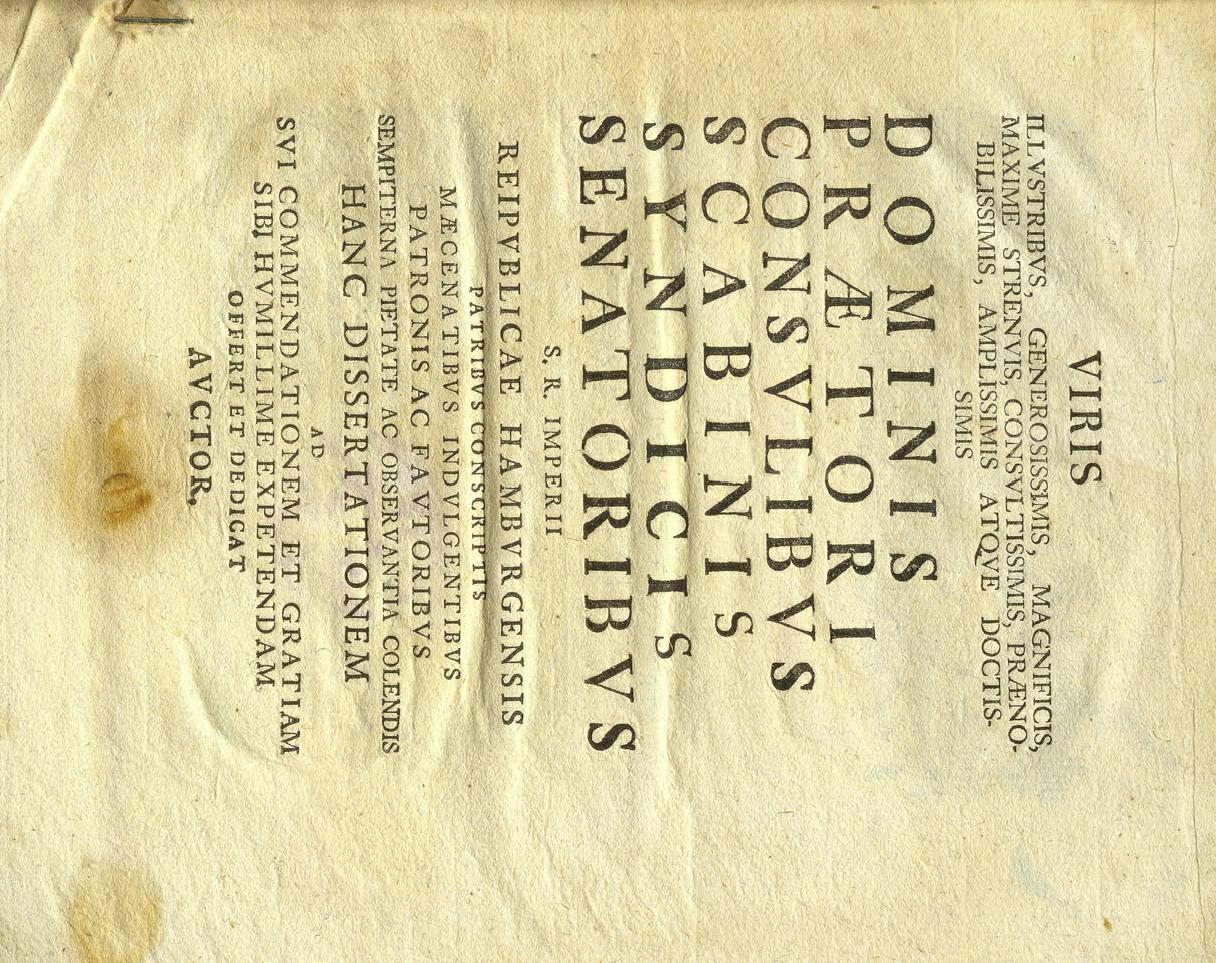 VIRIS
ILLVSTRIBVS, GENEROSISSIMIS, MAGNIFICIS,
MAXIME STRENVIS, CONSVLTISSIMIS, PRÆNO-
BILISSIMIS, AMPLISSIMIS ATQVE DOCTIS-
SIMIS
DOMINIS
PRÆTORI
CONSVLIBVS
SCABINIS
SYNDICIS
SENATORIBVS
S. R. IMPERII
REIPVBLICAE HAMBVRGENSIS
PATRIBVS CONSCRIPTIS
MÆCENATIBVS INDVLGENTIBVS
PATRONIS AC FAVTORIBVS
SEMPITERNA PIETATE AC OBSERVANTIA COLENDIS
HANC DISSERTATIONEM
AD
SVI COMMENDATIONEM ET GRATIAM
SIBI HVMILLIME EXPETENDAM
OFFERT ET DEDICAT
AVCTOR.